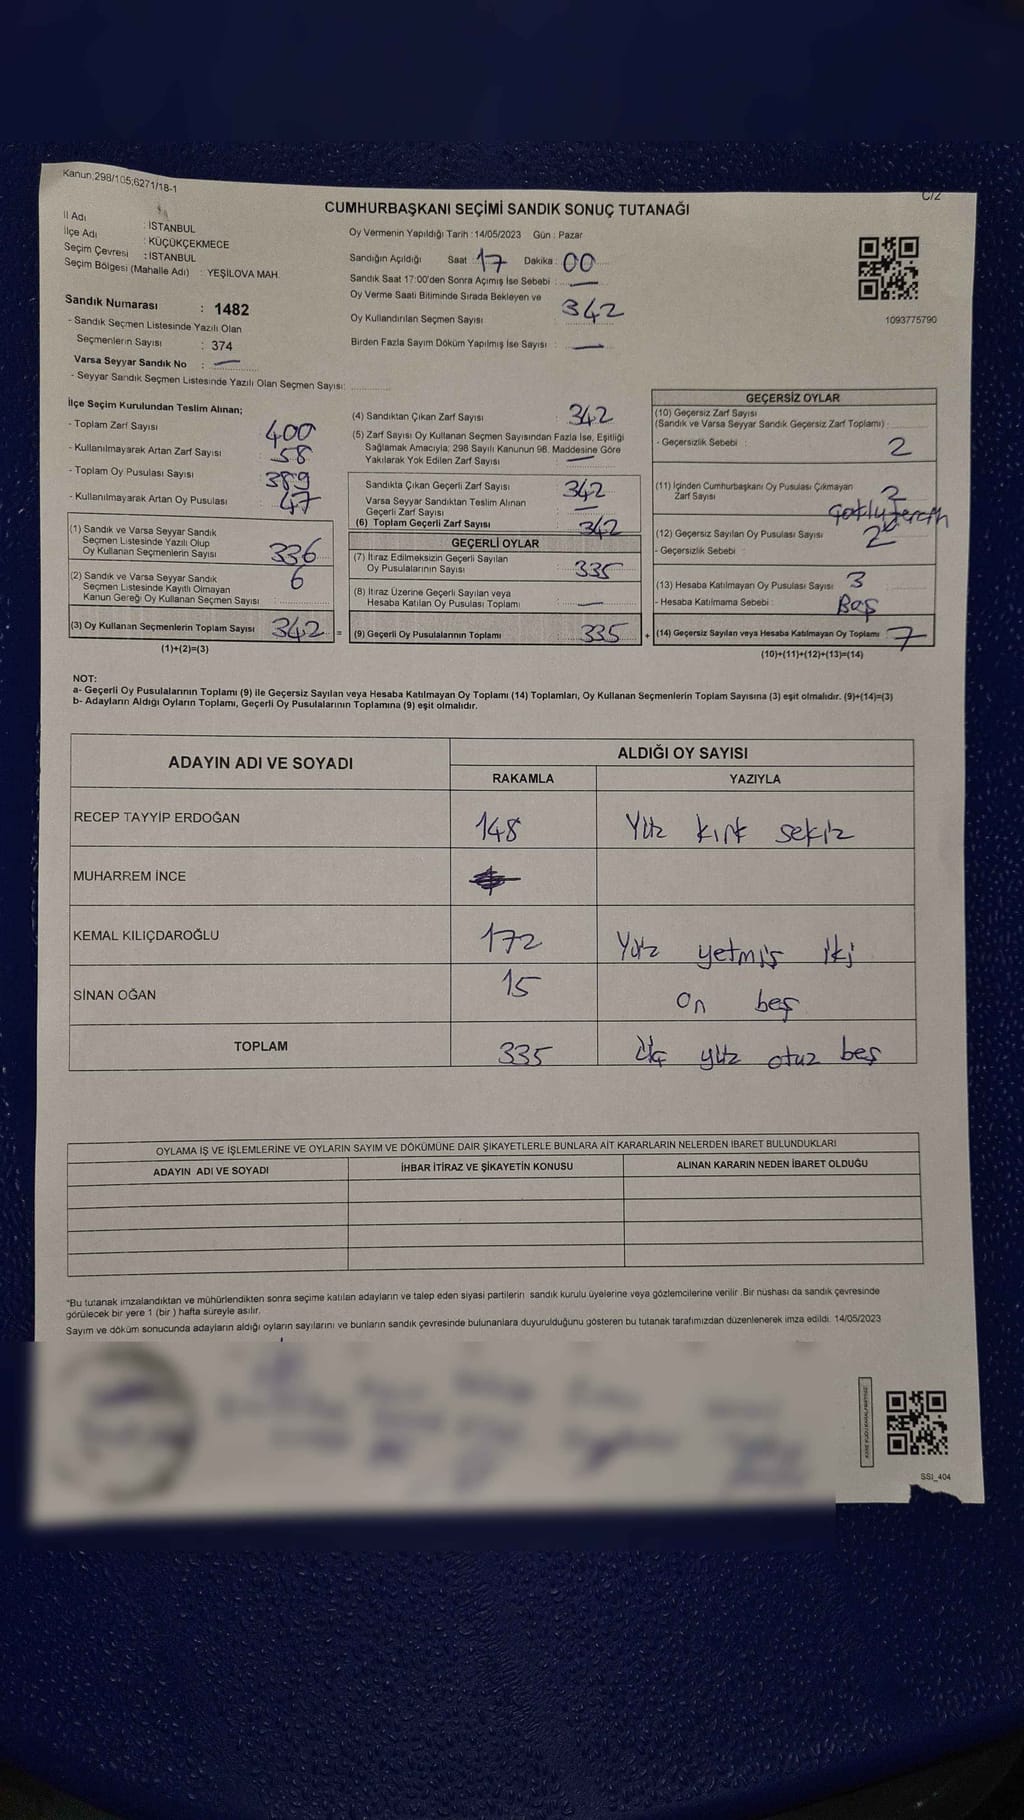 Kanun;298/105;6271/18-1
C/2
CUMHURBAŞKANI SEÇİMİ SANDIK SONUÇ TUTANAĞI
İl Adı : İSTANBUL
İlçe Adı : KÜÇÜKÇEKMECE
Seçim Çevresi : İSTANBUL
Seçim Bölgesi (Mahalle Adı) : YEŞİLOVA MAH.
Sandık Numarası : 1482
- Sandık Seçmen Listesinde Yazılı Olan
Seçmenlerin Sayısı : 374
Varsa Seyyar Sandık No : —
- Seyyar Sandık Seçmen Listesinde Yazılı Olan Seçmen Sayısı:
Oy Vermenin Yapıldığı Tarih : 14/05/2023 Gün : Pazar
Sandığın Açıldığı Saat : 17 Dakika : 00
Sandık Saat 17:00'den Sonra Açımış İse Sebebi : —
Oy Verme Saati Bitiminde Sırada Bekleyen ve
Oy Kullandırılan Seçmen Sayısı : 342
Birden Fazla Sayım Döküm Yapılmış İse Sayısı : —
1093775790
İlçe Seçim Kurulundan Teslim Alınan;
- Toplam Zarf Sayısı : 400
- Kullanılmayarak Artan Zarf Sayısı : 58
- Toplam Oy Pusulası Sayısı : 389
- Kullanılmayarak Artan Oy Pusulası : 47
(1) Sandık ve Varsa Seyyar Sandık
Seçmen Listesinde Yazılı Olup
Oy Kullanan Seçmenlerin Sayısı 336
(2) Sandık ve Varsa Seyyar Sandık
Seçmen Listesinde Kayıtlı Olmayan
Kanun Gereği Oy Kullanan Seçmen Sayısı : 6
(3) Oy Kullanan Seçmenlerin Toplam Sayısı 342 =
(1)+(2)=(3)
(4) Sandıktan Çıkan Zarf Sayısı : 342
(5) Zarf Sayısı Oy Kullanan Seçmen Sayısından Fazla İse, Eşitliği
Sağlamak Amacıyla; 298 Sayılı Kanunun 98. Maddesine Göre
Yakılarak Yok Edilen Zarf Sayısı : —
Sandıkta Çıkan Geçerli Zarf Sayısı : 342
Varsa Seyyar Sandıktan Teslim Alınan
Geçerli Zarf Sayısı : —
(6) Toplam Geçerli Zarf Sayısı : 342
GEÇERLİ OYLAR
(7) İtiraz Edilmeksizin Geçerli Sayılan
Oy Pusulalarının Sayısı : 335
(8) İtiraz Üzerine Geçerli Sayılan veya
Hesaba Katılan Oy Pusulası Toplamı : —
(9) Geçerli Oy Pusulalarının Toplamı : 335 +
GEÇERSİZ OYLAR
(10) Geçersiz Zarf Sayısı
(Sandık ve Varsa Seyyar Sandık Geçersiz Zarf Toplamı) :
- Geçersizlik Sebebi : 2
(11) İçinden Cumhurbaşkanı Oy Pusulası Çıkmayan
Zarf Sayısı
(12) Geçersiz Sayılan Oy Pusulası Sayısı : 2
- Geçersizlik Sebebi :
(13) Hesaba Katılmayan Oy Pusulası Sayısı : 3
- Hesaba Katılmama Sebebi : Boş
(14) Geçersiz Sayılan veya Hesaba Katılmayan Oy Toplamı : 7
(10)+(11)+(12)+(13)=(14)
NOT:
a- Geçerli Oy Pusulalarının Toplamı (9) ile Geçersiz Sayılan veya Hesaba Katılmayan Oy Toplamı (14) Toplamları, Oy Kullanan Seçmenlerin Toplam Sayısına (3) eşit olmalıdır. (9)+(14)=(3)
b- Adayların Aldığı Oyların Toplamı, Geçerli Oy Pusulalarının Toplamına (9) eşit olmalıdır.
ADAYIN ADI VE SOYADI ALDIĞI OY SAYISI
RAKAMLA YAZIYLA
RECEP TAYYİP ERDOĞAN 148 Yüz kırk sekiz
MUHARREM İNCE
KEMAL KILIÇDAROĞLU 172 Yüz yetmiş iki
SİNAN OĞAN 15 on beş
TOPLAM 335 üç yüz otuz beş
OYLAMA İŞ VE İŞLEMLERİNE VE OYLARIN SAYIM VE DÖKÜMÜNE DAİR ŞİKAYETLERLE BUNLARA AİT KARARLARIN NELERDEN İBARET BULUNDUKLARI
ADAYIN ADI VE SOYADI İHBAR İTİRAZ VE ŞİKAYETİN KONUSU ALINAN KARARIN NEDEN İBARET OLDUĞU
*Bu tutanak imzalandıktan ve mühürlendikten sonra seçime katılan adayların ve talep eden siyasi partilerin sandık kurulu üyelerine veya gözlemcilerine verilir. Bir nüshası da sandık çevresinde
görülecek bir yere 1 (bir ) hafta süreyle asılır.
Sayım ve döküm sonucunda adayların aldığı oyların sayılarını ve bunların sandık çevresinde bulunanlara duyurulduğunu gösteren bu tutanak tarafımızdan düzenlenerek imza edildi. 14/05/2023
SSI_404